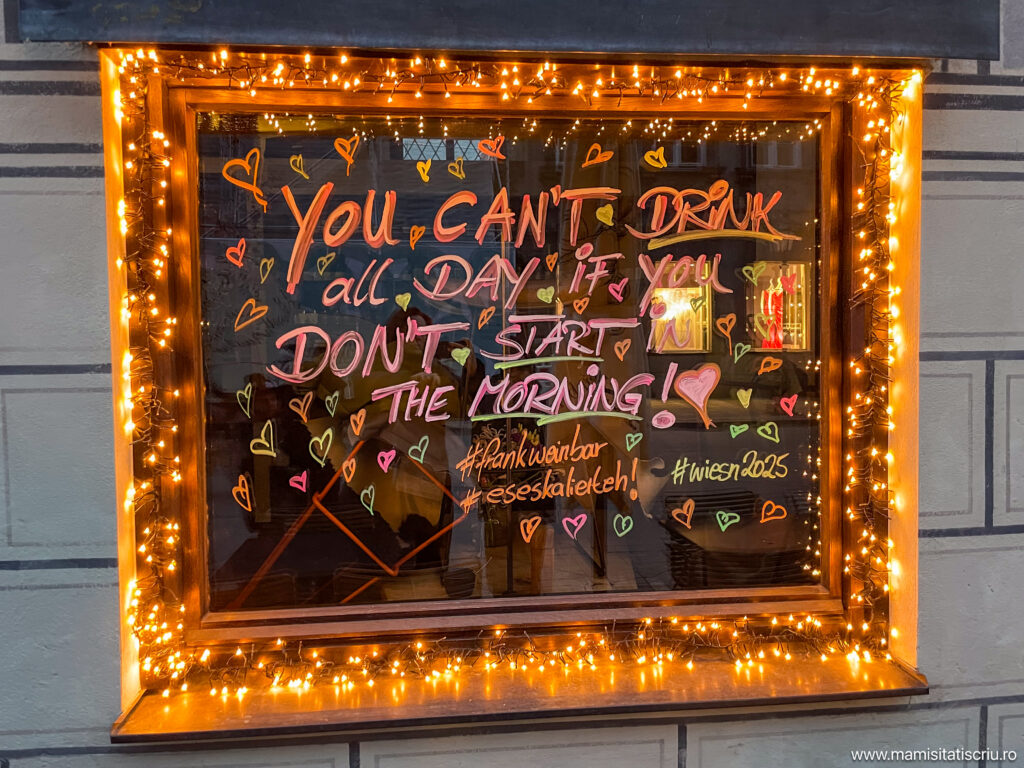 YOU CAN'T DRINK
all DAY if YOU
DON'T START in
THE MORNiNG!
#frankweinbar
#eseskalierteh!
#wiesn2025
www.mamisitatiscriu.ro